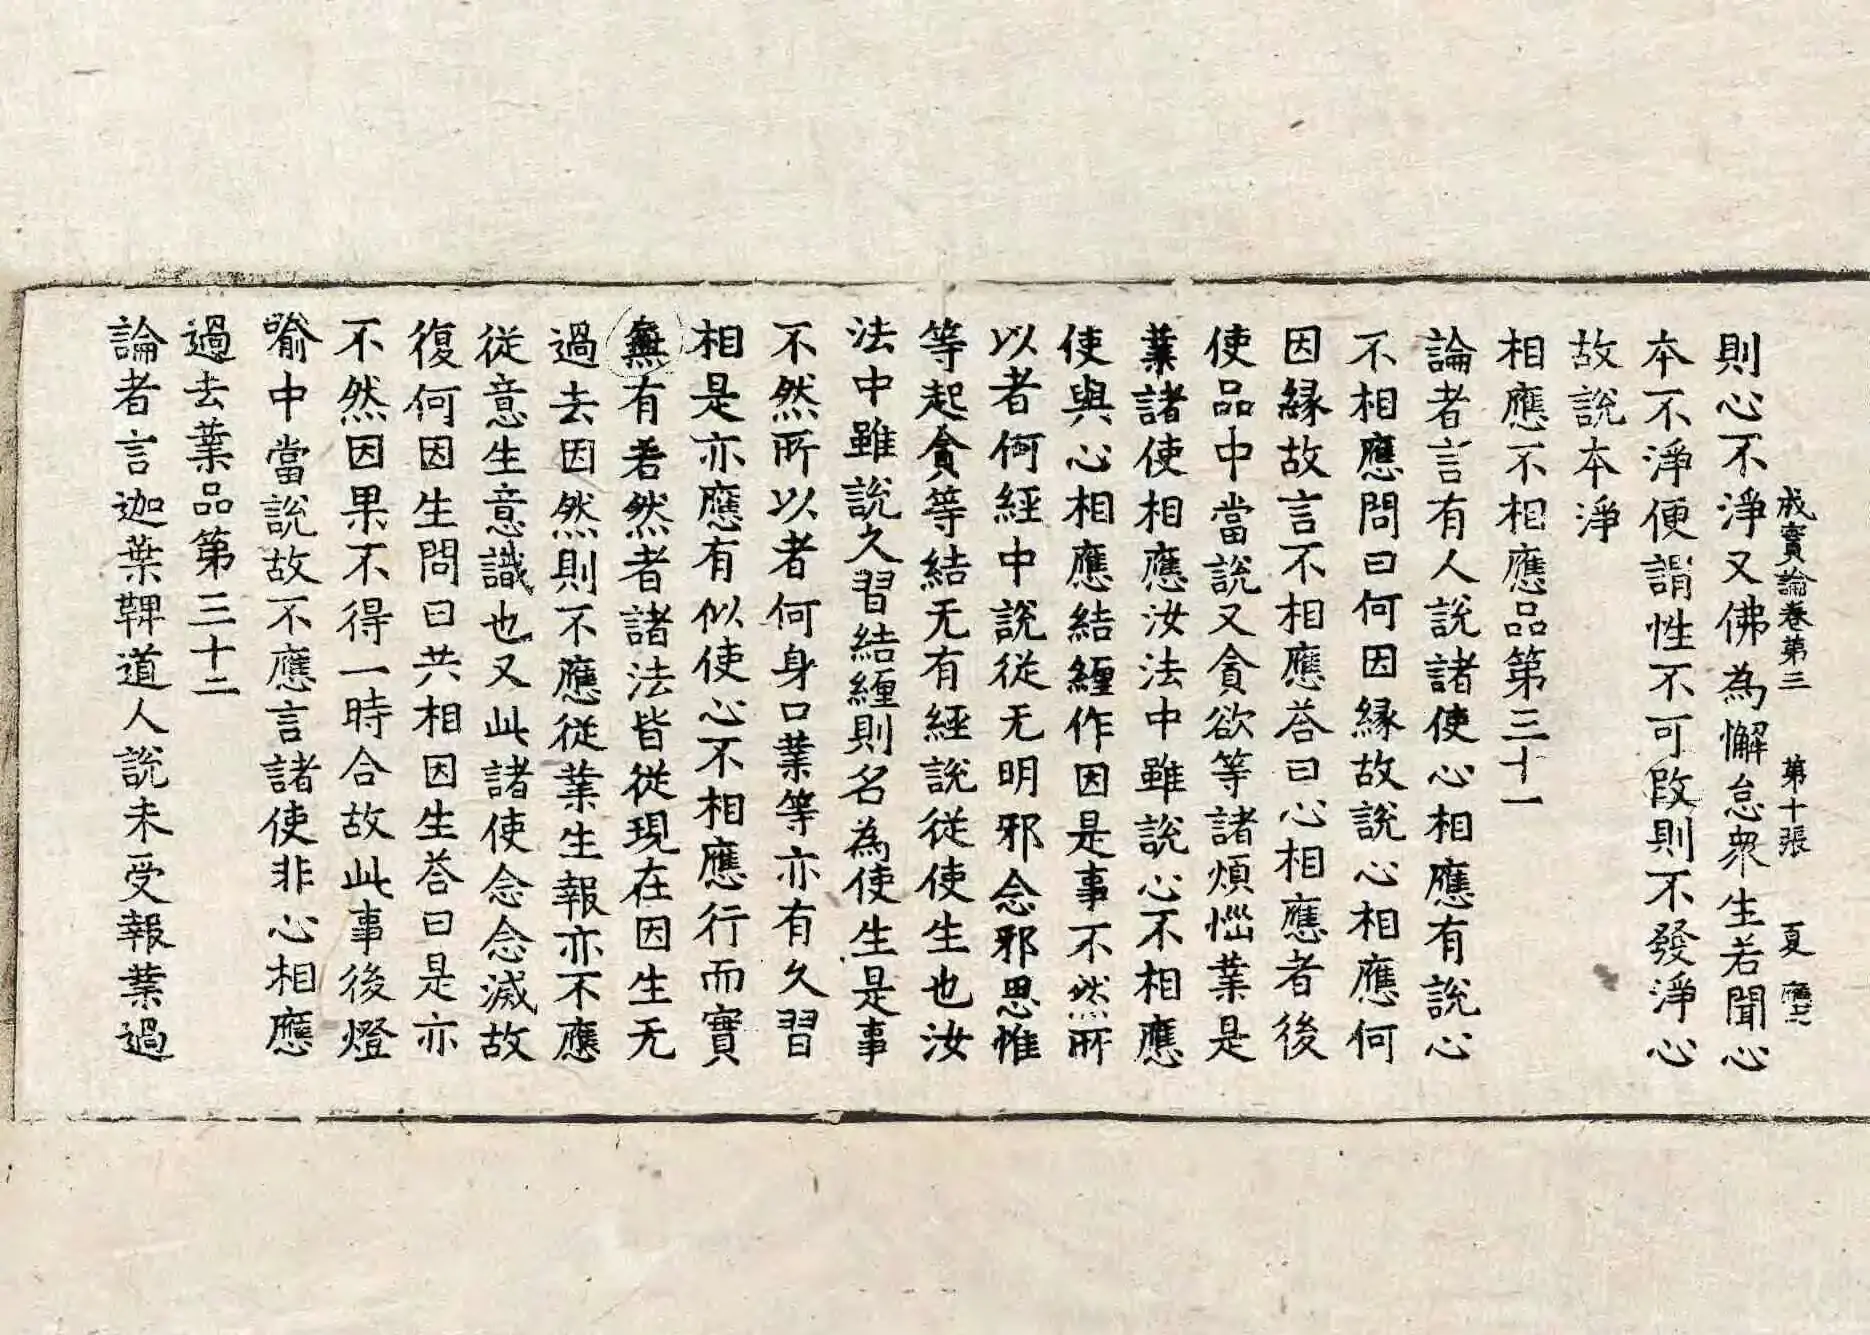 成實論卷第三 第十張 夏
則心不淨又佛為懈怠衆生若聞心
本不淨便謂性不可改則不發淨心
故說本淨
相應不相應品第三十一
論者言有人說諸使心相應有說心
不相應問曰何因緣故說心相應何
因緣故言不相應荅曰心相應者後
使品中當說又貪欲等諸煩惱業是
業諸使相應汝法中雖說心不相應
使與心相應結纏作因是事不然所
以者何經中說從无明邪念邪思惟
等起貪等結无有經說從使生也汝
法中雖說久習結纏則名為使生是事
不然所以者何身口業等亦有久習
相是亦應有似使心不相應行而實
無有若然者諸法皆從現在因生无
過去因然則不應從業生報亦不應
從意生意識也又此諸使念念滅故
復何因生問曰共相因生荅曰是亦
不然因果不得一時合故此事後燈
喻中當說故不應言諸使非心相應
過去業品第三十二
論者言迦葉鞞道人說未受報業過